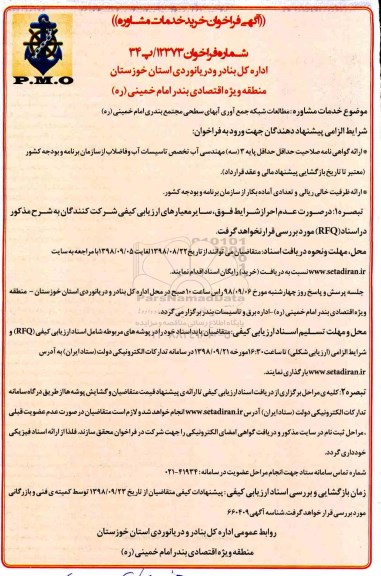 ((آگهی فراخوان خرید خدمات مشاوره))
شماره فراخوان ۱۲۳۷۳/پ۳۴
اداره کل بنادر و دریانوردی استان خوزستان
منطقه ویژه اقتصادی بندر امام خمینی (ره)
P.M.O
موضوع خدمات مشاوره: مطالعات شبکه جمع آوری آبهای سطحی مجتمع بندری امام خمینی (ره)
شرایط الزامی پیشنهاد دهندگان جهت ورود به فراخوان:
*ارائه گواهی نامه صلاحیت حداقل حداقل پایه ۳ (سه) مهندسی آب تخصص تاسیسات آب و فاضلاب از سازمان برنامه و بودجه کشور
(معتبر تا تاریخ بازگشایی پیشنهاد مالی و عقد قرارداد).
*ارائه ظرفیت خالی ریالی و تعدادی آماده بکار از سازمان برنامه و بودجه کشور.
تبصره۱: در صورت عدم احراز شرایط فوق، سایر معیارهای ارزیابی کیفی شرکت کنندگان به شرح مذکور
در اسناد (RFQ) مورد بررسی قرار نخواهد گرفت.
محل، مهلت و نحوه دریافت اسناد: متقاضیان می توانند از تاریخ ۱۳۹۸/۰۸/۲۲ لغایت ۱۳۹۸/۰۹/۰۵ با مراجعه به سایت
www.setadiran.ir نسبت به دریافت (خرید) رایگان اسناد اقدام نمایند.
جلسه پرسش و پاسخ روز چهارشنبه مورخ ۹۸/۰۹/۰۶ راس ساعت ۱۰ صبح در محل اداره کل بنادر و دریانوردی استان خوزستان - منطقه
ویژه اقتصادی بندر امام خمینی (ره) -اداره برق و تاسیسات بندر برگزار می گردد.
محل و مهلت تسلیم اسناد ارزیابی کیفی: متقاضیان باید اسناد خود را در پوشه های مربوطه شامل اسناد ارزیابی کیفی (RFQ) و
شرایط الزامی (ارزیابی شکلی) تا ساعت ۱۶:۳۰ مورخ ۱۳۹۸/۰۹/۲۱ در سامانه تدارکات الکترونیکی دولت (ستاد ایران) به آدرس
www.setadiran.ir بارگذاری نمایند.
تبصره۲: کلیه ی مراحل برگزاری از دریافت اسناد ارزیابی کیفی تا ارائه ی پیشنهاد قیمت متقاضیان و گشایش پوشه ها از طریق درگاه سامانه
تدارکات الکترونیکی دولت (ستاد ایران) آدرس www.setadiran.ir انجام خواهد شد و لازم است متقاضیان در صورت عدم عضویت قبلی
، مراحل ثبت نام در سایت مذکور و دریافت گواهی امضای الکترونیکی را جهت شرکت در فراخوان محقق سازند. فلذا از ارائه اسناد فیزیکی
خودداری گردد.
شماره تماس سامانه ستاد جهت انجام مراحل عضویت در سامانه: ۴۱۹۳۴-۰۲۱
زمان بازگشایی و بررسی اسناد ارزیابی کیفی: پیشنهادات کیفی متقاضیان از تاریخ ۱۳۹۸/۰۹/۲۳ توسط کمیته ی فنی و بازرگانی
مورد بررسی قرار خواهد گرفت. شناسه آگهی ۶۶۰۴۰۹
روابط عمومی اداره کل بنادر و دریانوردی استان خوزستان
منطقه ویژه اقتصادی بندر امام خمینی (ره)